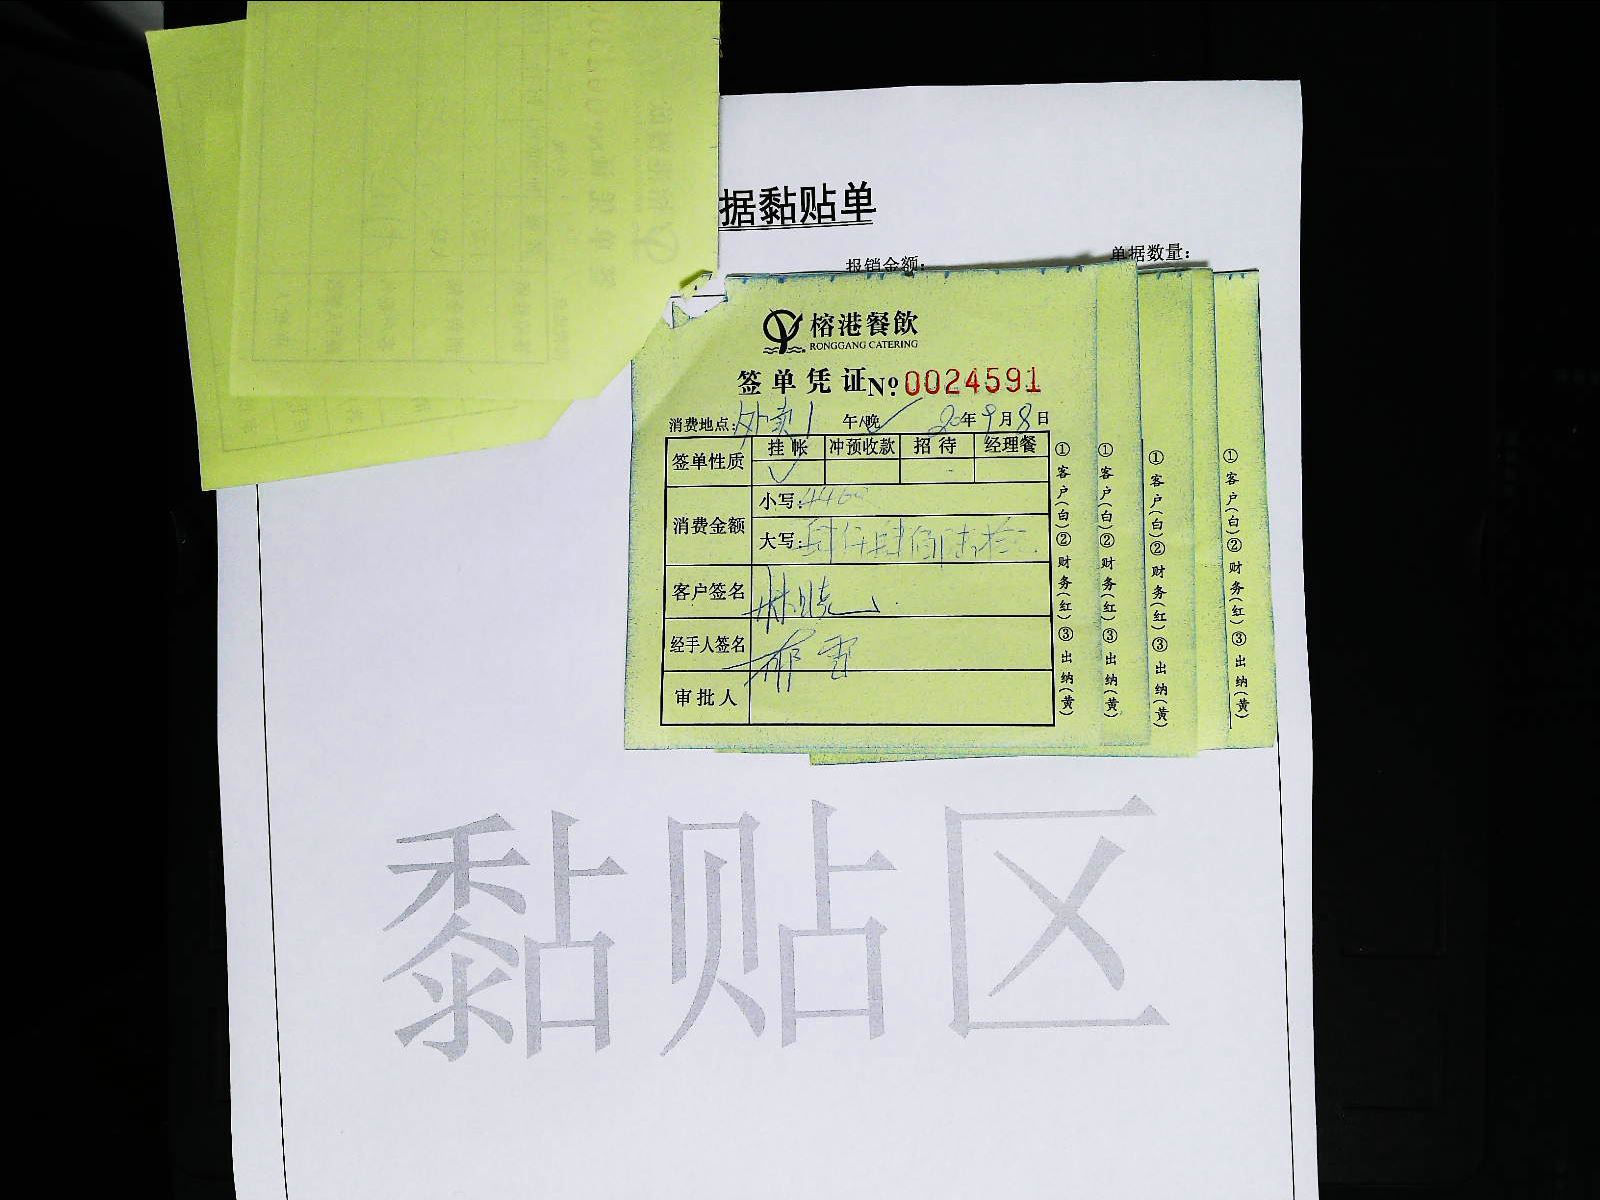 据黏贴单
报销金额：
单据数量：
榕港餐飲
RONGGANG CATERING
签单凭证 №:0024591
消费地点：外卖1 午/晚✓ 20年9月8日
签单性质 挂帐 冲预收款 招待 经理餐
✓
消费金额 小写：4460
大写：肆仟肆佰陆拾元
客户签名
经手人签名
审批人
①客户(白)②财务(红)③出纳(黄)
①客户(白)②财务(红)③出纳(黄)
①客户(白)②财务(红)③出纳(黄)
①客户(白)②财务(红)③出纳(黄)
黏贴区